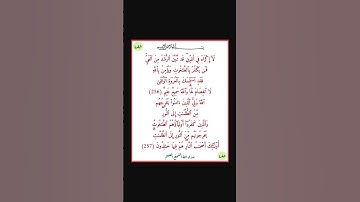 لَا إِكْرَاهَ فِي الدِّينِ قَد تَّبَيَّنَ الرُّشْدُ مِنَ الْغَيِّ
فَمَن يَكْفُرْ بِالطَّاغُوتِ وَيُؤْمِن بِاللَّهِ
فَقَدِ اسْتَمْسَكَ بِالْعُرْوَةِ الْوُثْقَىٰ
لَا انفِصَامَ لَهَا وَاللَّهُ سَمِيعٌ عَلِيمٌ (256)
اللَّهُ وَلِيُّ الَّذِينَ ءَامَنُوا يُخْرِجُهُم
مِّنَ الظُّلُمَٰتِ إِلَى النُّورِ
وَالَّذِينَ كَفَرُوا أَوْلِيَاؤُهُمُ الطَّاغُوتُ
يُخْرِجُونَهُم مِّنَ النُّورِ إِلَى الظُّلُمَٰتِ
أُولَٰئِكَ أَصْحَٰبُ النَّارِ هُمْ فِيهَا خَٰلِدُونَ (257)